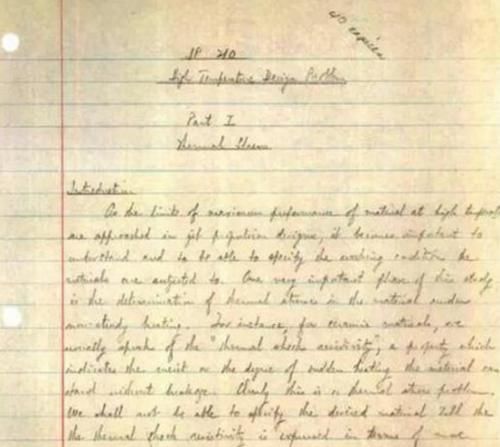 40 copies
JP 210
High Temperature Design Problem
Part I
Thermal Stress
Introduction
As the limits of maximum performance of material at high temperat
are approached in jet propulsion designs, it becomes important to
understand and to be able to specify the working condition the
materials are subjected to. One very important phase of this study
is the determination of thermal stress in the material under
non-steady heating. For instance, for ceramic materials, we
usually speak of the "thermal shock resistivity", a property which
indicates the merit or the degree of sudden heating the material can
stand without breakage. Clearly this is a thermal stress problem.
We shall not be able to specify the desired material till the
the thermal shock resistivity is expressed in terms of more